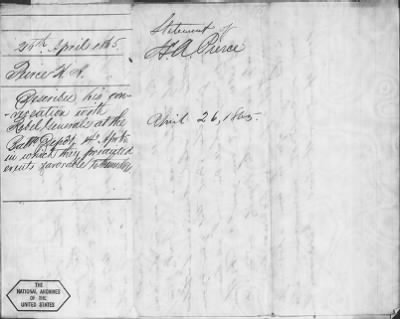 26th April 1865.
Pierce H. A.
Describes his con-
versation with
Rebel Generals at the
Balto Depot, 14 April
in which they presented
events favorable to
Statement of
H. A. Pierce
April 26, 1865.
THE
NATIONAL ARCHIVES
OF THE
UNITED STATES